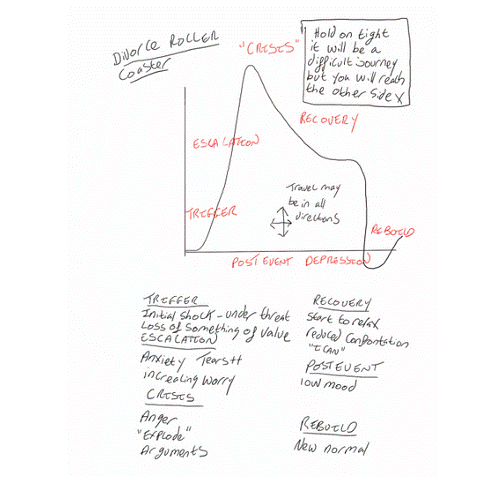 Divorce ROLLER
Coaster
"CRISIS"
Hold on tight
it will be a
difficult journey
but you will reach
the other side x
RECOVERY
ESCALATION
TRIGGER
Travel may
be in all
directions
REBUILD
POST EVENT DEPRESSION
TRIGGER
Initial shock - under threat
Loss of something of value
ESCALATION
Anxiety Tears++
increasing worry
CRISIS
Anger
"Explode"
Arguments
RECOVERY
Start to relax
reduced confrontation
"I CAN"
POST EVENT
low mood
REBUILD
New normal